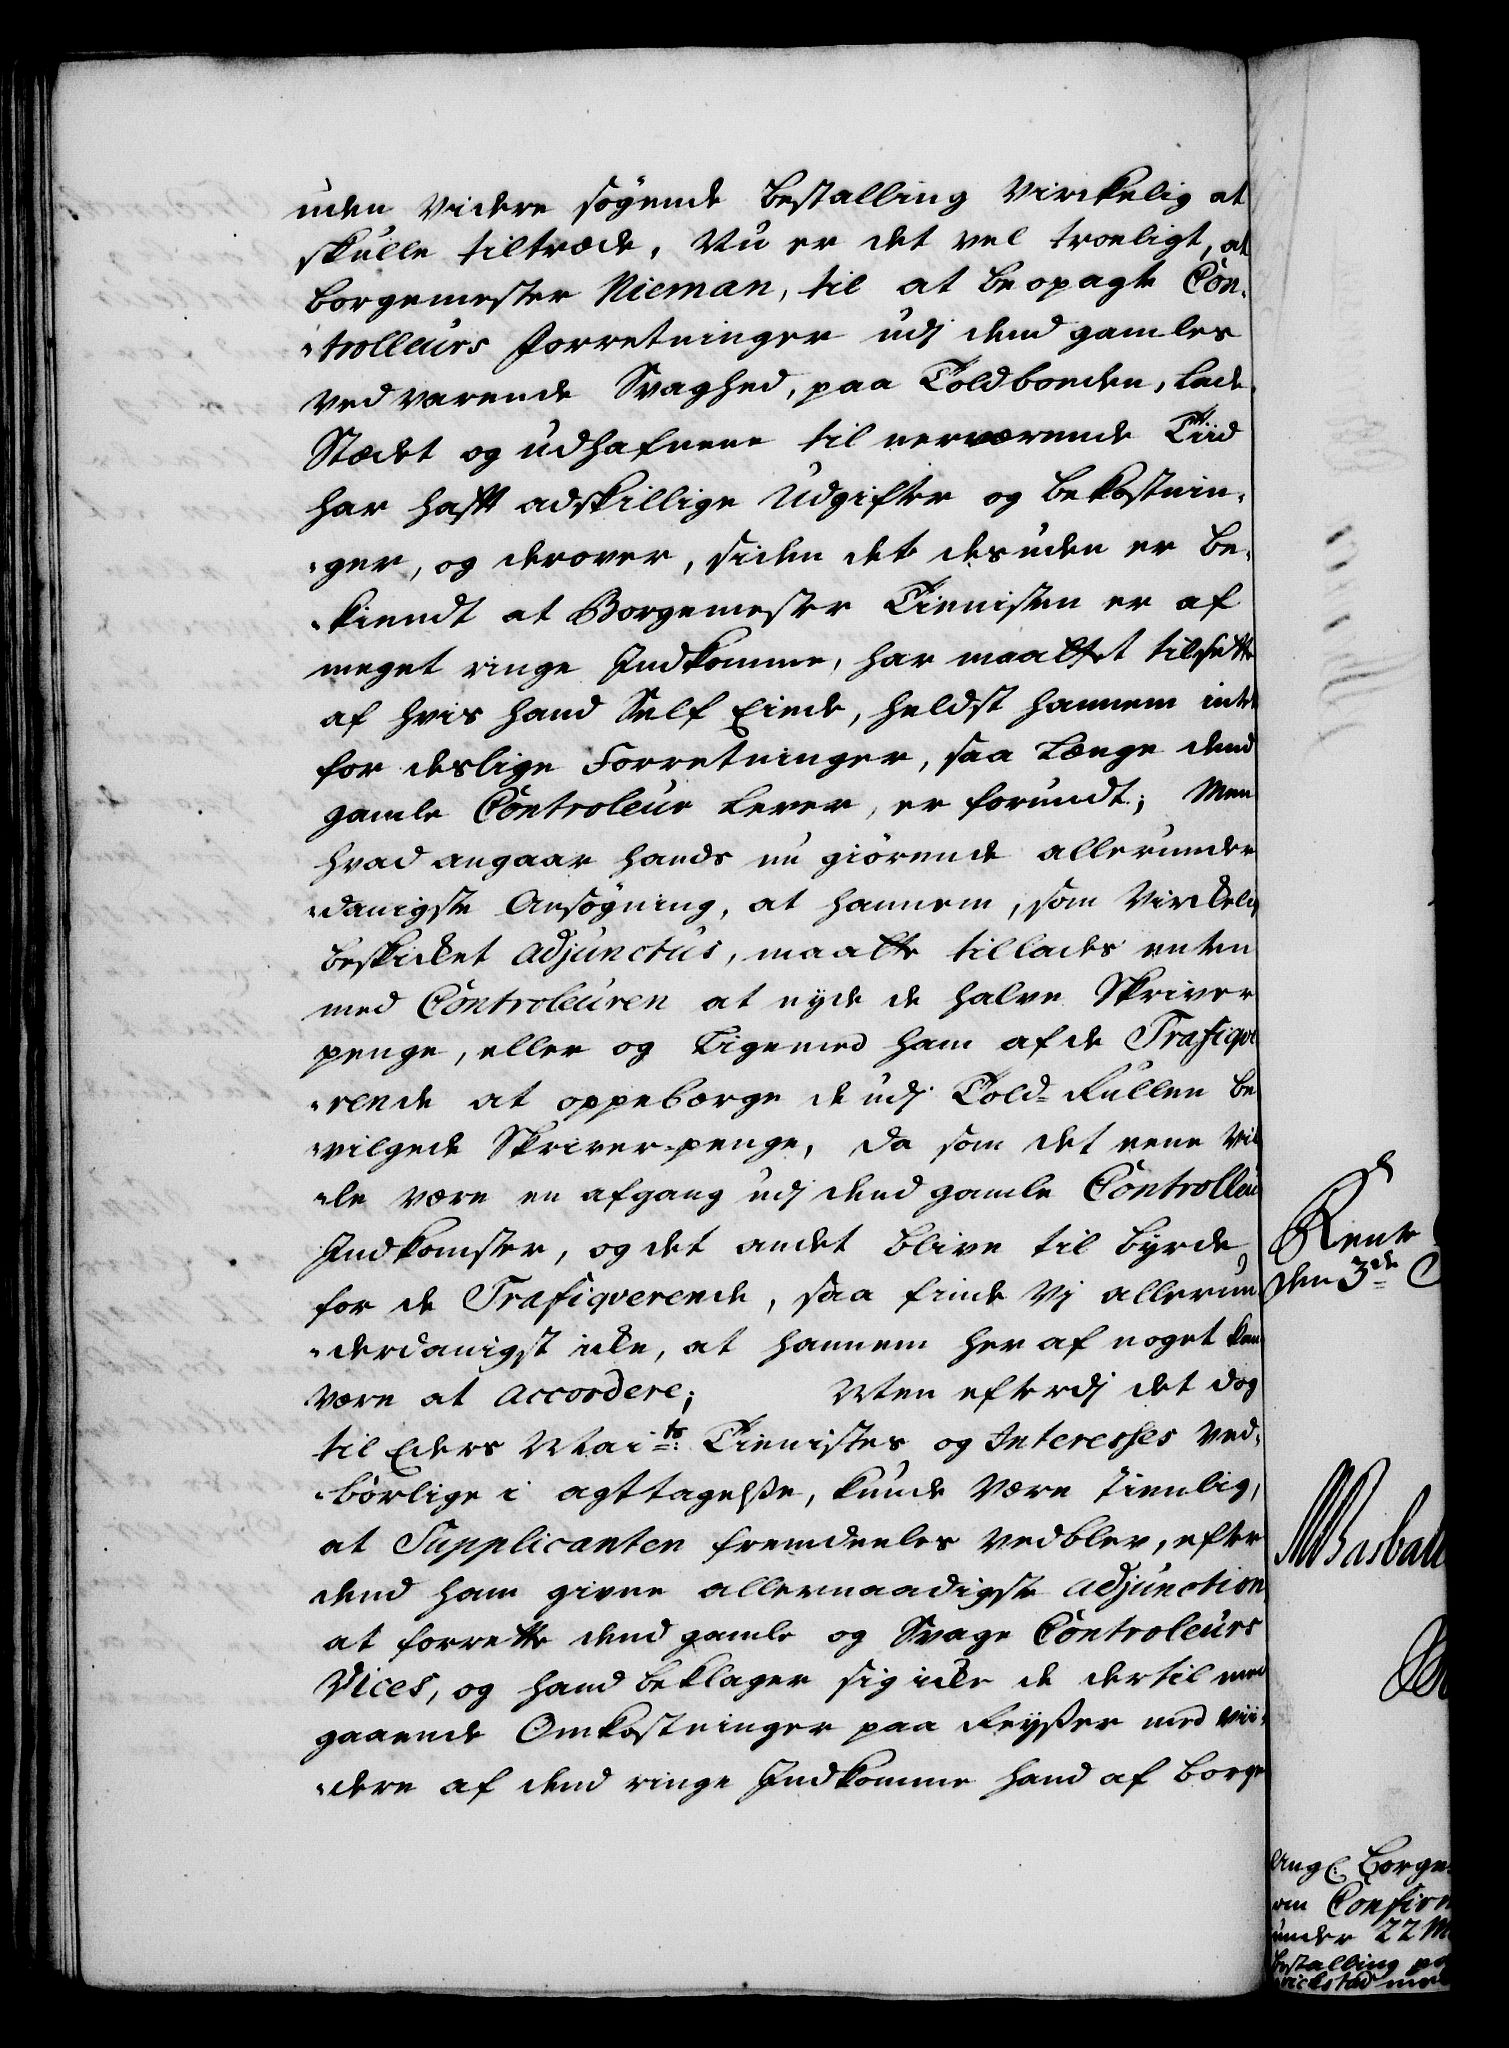 uden videre søgende Bestalling virckelig at
skulle tiltræde. Nu er det vel troeligt, at
Borgemester Nieman, til at beopagte Con¬
¬trolleurs Forretninger udj dend gamles
vedvarende Svaghed, paa Toldboeden, Lade¬
Stædet og Udhafnene til nerværende Tiid
har hafft adskillige Udgifter og bekostnin¬
¬ger, og derover, siden det desuden er be¬
¬kiendt at Borgemester Tienisten er af
meget ringe Indkomme, har maattet tilsette
af hvis hand Self Eiede, heldst hannem intet
for deslige Forretninger, saa Længe dend
gamle Controleur Lever, er forundt; Men
hvad angaar hands nu giørende allerunder
¬danigste Ansøgning, at hannem, som Virckelig
beskicket adjunctus, maatte tillades enten
med Controleuren at nyde de halve Skriver
penge, eller og Ligemed ham af de Trafiqve
¬rende at oppebærge de udj Told-Rullen be
¬vilgede Skriver-penge, da som det eene vil
¬le være en afgang udj dend gamle Controlleurs
Indkomster, og det andet blive til byrde
for de Trafiqverende, saa finde Vj allerun
¬derdanigst icke, at hannem her af noget kan
være at accordere; Men efterdj det dog
til Eders Mai:ts Tienistes og Interesses ved¬
¬børlige i agttagelsse, kunde være tienlig,
at Supplicanten fremdeeles vedblev, efter
dend ham givne allernaadigste adjunction
at forrette dend gamle og Svage Controleurs
Vices, og hand beklager sig icke de dertil med
gaaende Omkostninger paa Reysser med vii¬
¬dere af dend ringe Indkomme hand af Borge
Rente
den 3de
Ang: Borge
om Confirm
under 22 M
bestalling paa